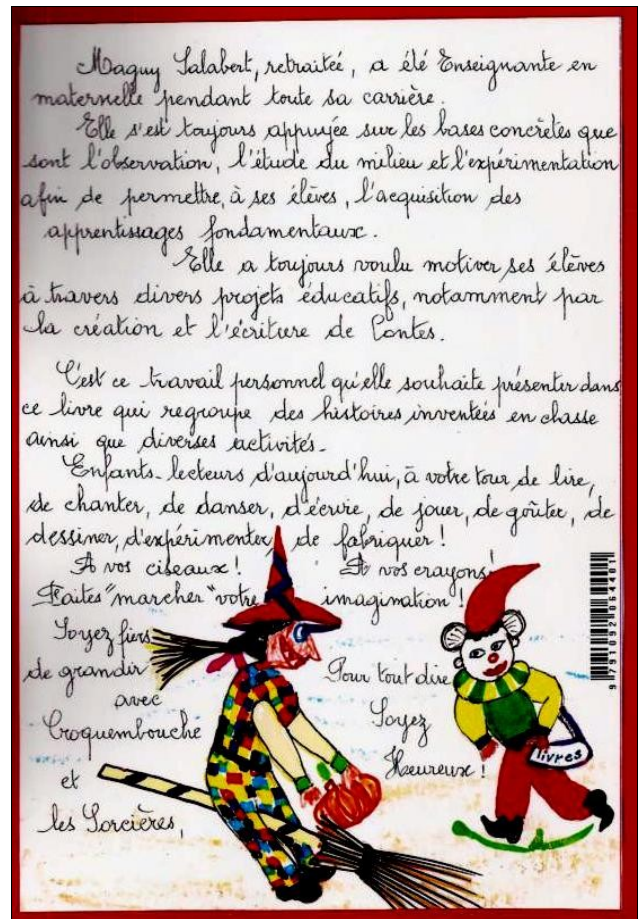 Maguy Salabert, retraitée, a été Enseignante en
maternelle pendant toute sa carrière.
Elle s'est toujours appuyée sur les bases concrètes que
sont l'observation, l'étude du milieu et l'expérimentation
afin de permettre, à ses élèves, l'acquisition des
apprentissages fondamentaux.
Elle a toujours voulu motiver ses élèves
à travers divers projets éducatifs, notamment par
la création et l'écriture de Contes.
C'est ce travail personnel qu'elle souhaite présenter dans
ce livre qui regroupe des histoires inventées en classe
ainsi que diverses activités.
Enfants-lecteurs d'aujourd'hui, à votre tour de lire,
de chanter, de danser, d'écrire, de jouer, de goûter, de
dessiner, d'expérimenter, de fabriquer !
A vos ciseaux ! A vos crayons !
Faites "marcher" votre imagination !
Soyez fiers
de grandir
avec
Croquembouche
et
les Sorcières,
Pour tout dire
Soyez
Heureux !
livres
9 791092 064401